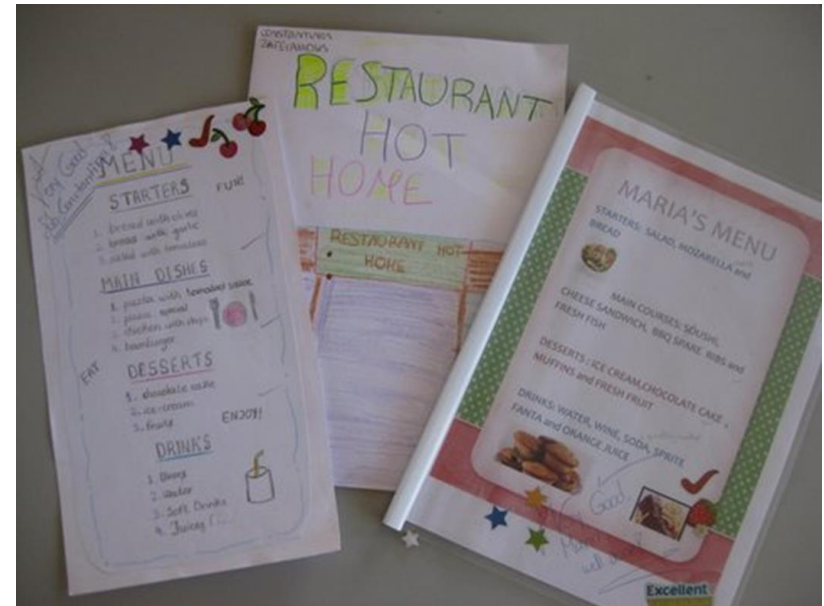 Very Good
Constantinos
MENU
STARTERS
FUN!
1. bread with olives
2. bread with garlic
3. salad with tomatoes
MAIN DISHES
1. pasta with tomatoe sauce
2. pizza special
3. chicken with chips
4. hamburger
EAT
DESSERTS
1. chocolate cake
2. ice-cream
3. fruits
ENJOY!
DRINKS
2. Water
3. Soft Drinks
4. Juices
CONSTANTINOS
RESTAURANT
HOT
HOME
RESTAURANT HOT
HOME
MARIA'S MENU
STARTERS: SALAD, MOZARELLA and
BREAD
MAIN COURSES: SOUSHI,
CHEESE SANDWICH, BBQ SPARE RIBS and
FRESH FISH
DESSERTS : ICE CREAM,CHOCOLATE CAKE ,
MUFFINS and FRESH FRUIT
DRINKS: WATER, WINE, SODA, SPRITE
FANTA and ORANGE JUICE
Very Good
Maria
well done!
Excellent